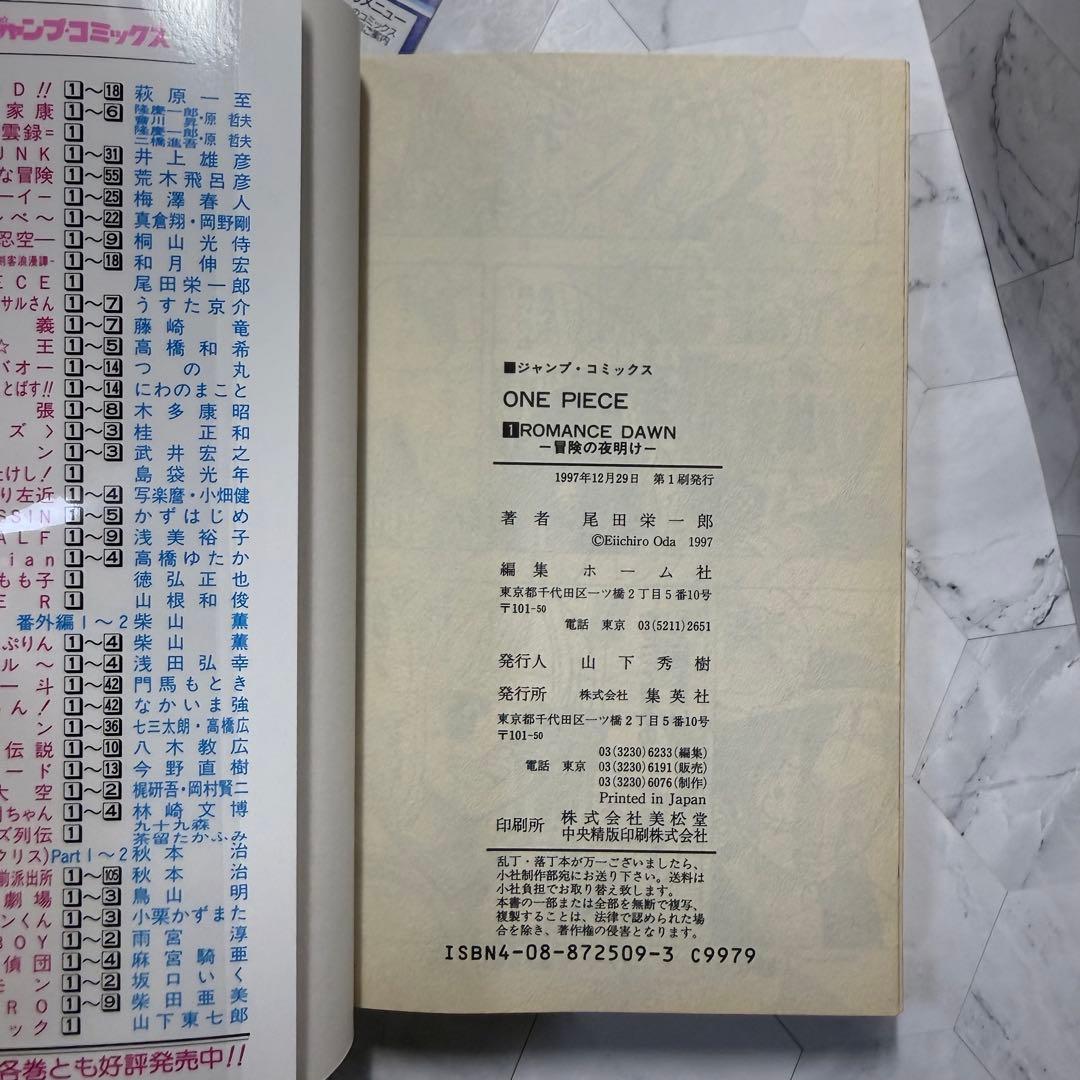 ジャンプ・コミックス
メニュー
のコミックス
ご案内
D!! 1〜18 萩原一至
家康 1〜6 隆慶一郎・原哲夫
會川昇
雲録= 1 隆慶一郎・原哲夫
二橋進吾
UNK 1〜31 井上雄彦
な冒険 1〜55 荒木飛呂彦
ーイ− 1〜25 梅澤春人
〜べ〜 1〜22 真倉翔・岡野剛
忍空― 1〜9 桐山光侍
剣客浪漫譚- 1〜18 和月伸宏
ECE 1 尾田栄一郎
サルさん 1〜7 うすた京介
義 1〜7 藤崎竜
☆王 1〜5 高橋和希
バオー 1〜14 つの丸
とばす!! 1〜14 にわのまこと
張 1〜8 木多康昭
ズ〉 1〜3 桂正和
ン 1〜3 武井宏之
たけし! 1 島袋光年
り左近 1〜4 写楽麿・小畑健
SSIN 1〜5 かずはじめ
ALF 1〜9 浅美裕子
ian 1〜4 高橋ゆたか
もも子 1 徳弘正也
ER 1 山根和俊
番外編1〜2 柴山薫
ぷりん 1〜4 柴山薫
ル〜 1〜4 浅田弘幸
一斗 1〜42 門馬もとき
ん! 1〜42 なかいま強
ン 1〜36 七三太朗・高橋広
伝説 1〜10 八木教広
ード 1〜13 今野直樹
大空 1〜2 梶研吾・岡村賢二
ちゃん 1〜4 林崎文博
ズ列伝 1 九十九森
茶留たかふみ
クリス)Part1〜2 秋本治
前派出所 1〜105 秋本治
劇場 1〜3 鳥山明
ンくん 1〜3 小栗かずまた
BOY 1〜2 雨宮淳
偵団 1〜4 麻宮騎亜
モン 1〜2 坂口いく
RO 1〜9 柴田亜美
ック 1 山下東七郎
各巻とも好評発売中!!
■ジャンプ・コミックス
ONE PIECE
1ROMANCE DAWN
―冒険の夜明け―
1997年12月29日 第1刷発行
著者 尾田栄一郎
©Eiichiro Oda 1997
編集 ホーム社
東京都千代田区一ツ橋2丁目5番10号
〒101-50
電話 東京 03(5211)2651
発行人 山下秀樹
発行所 株式会社 集英社
東京都千代田区一ツ橋2丁目5番10号
〒101-50
03(3230)6233(編集)
電話 東京 03(3230)6191(販売)
03(3230)6076(制作)
Printed in Japan
印刷所 株式会社美松堂
中央精版印刷株式会社
乱丁・落丁本が万一ございましたら、
小社制作部宛にお送り下さい。送料は
小社負担でお取り替え致します。
本書の一部または全部を無断で複写、
複製することは、法律で認められた場
合を除き、著作権の侵害となります。
ISBN4-08-872509-3 C9979